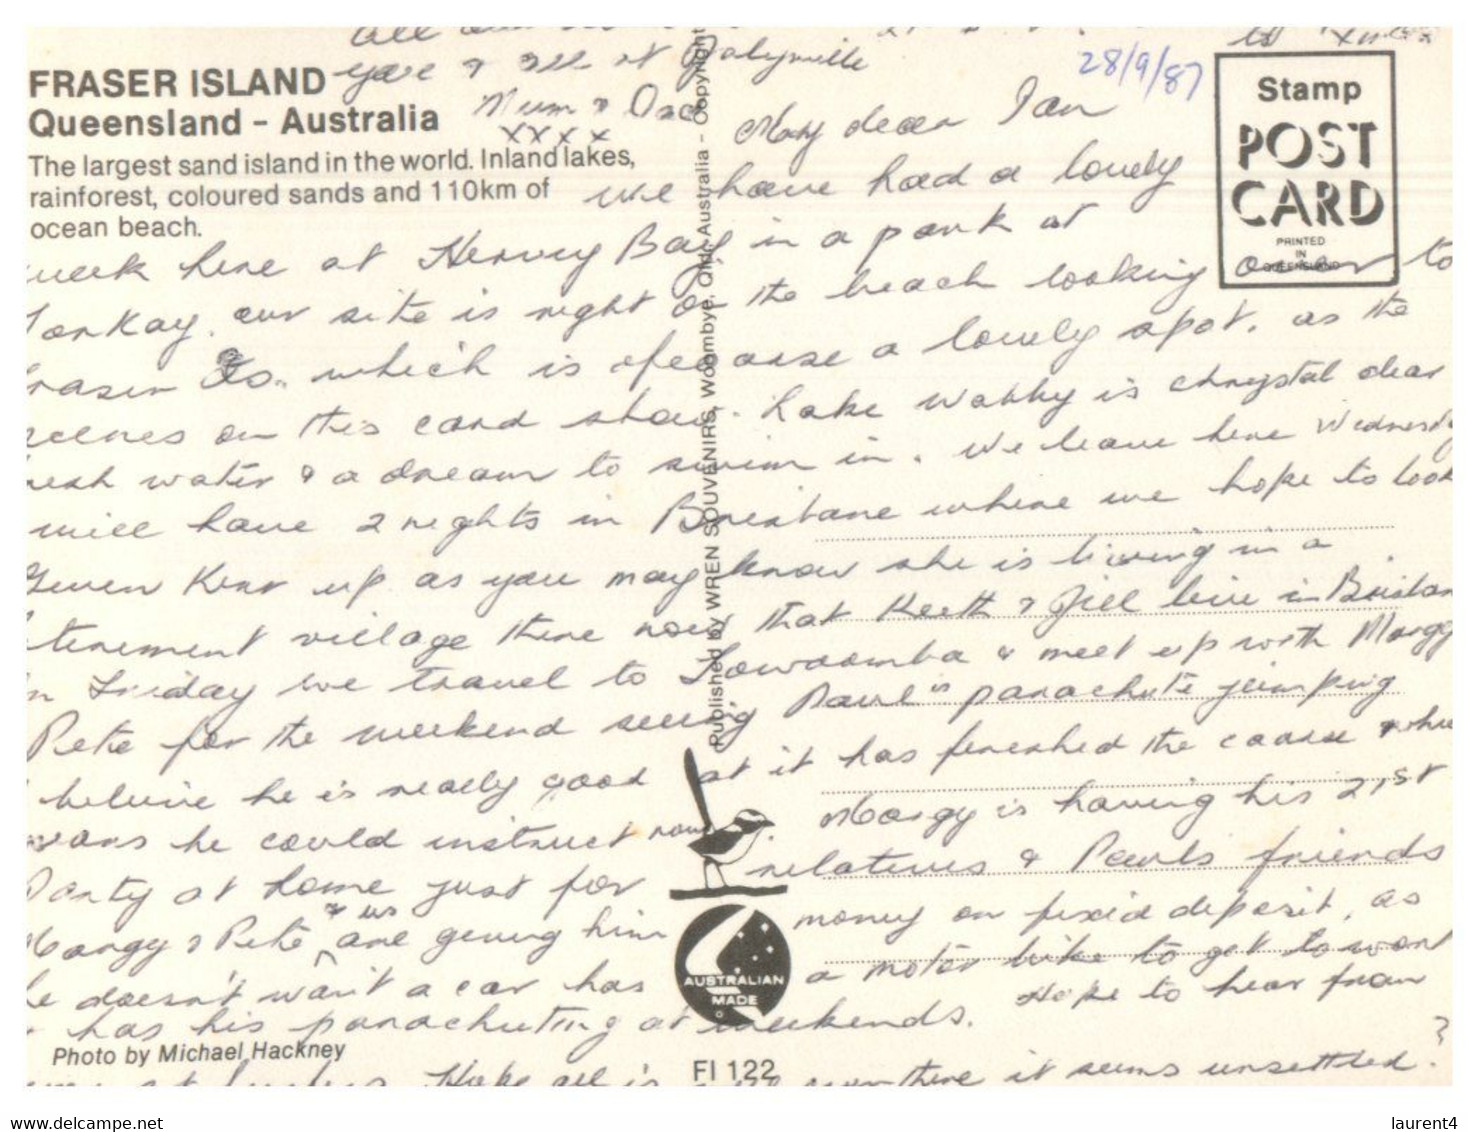 28/9/87
FRASER ISLAND
Queensland - Australia
The largest sand island in the world. Inland lakes,
rainforest, coloured sands and 110km of
ocean beach.
Stamp
POST
CARD
PRINTED
IN
QUEENSLAND
My dear Ian
we have had a lovely
week here at Hervey Bay in a park at
Torkay. our site is right on the beach looking over to
Fraser Is. which is of course a lovely spot. as the
scenes on this card show. Lake Wabby is chrystal clear
fresh water & a dream to swim in. We leave here Wednesday
will have 2 nights in Brisbane where we hope to look
Gwen Kerr up as you may know she is living in a
retirement village there now that Keith & Jill live in Brisban
On Friday we travel to Towoomba & meet up with Margy
Pete for the weekend seeing Paul parachute jumping
believe he is really good at it has finished the course & who
he could instruct now. Margy is having his 21st
Party at home just for relatives & Pauls friends
Margy & Pete & us are giving him money on fixed deposit, as
he doesn't want a car has a motor bike to get to work
& has his parachuting at weekends. Hope to hear from
Hope all is it seems unsettled. ?
All
you & Jill at
Mum & Dad
xxxx
Published by WREN SOUVENIRS, Woombye, Qld. Australia - Copyright
AUSTRALIAN
MADE
Photo by Michael Hackney
FI 122
www.delcampe.net
laurent4